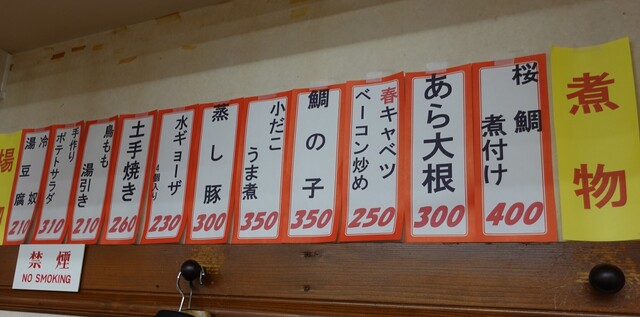 煮物
桜鯛
煮付け
400
あら大根
300
春キャベツ
ベーコン炒め
250
鯛の子
350
小だこ
うま煮
350
蒸し豚
300
水ギョーザ
4個入り
230
土手焼き
260
鳥もも
湯引き
210
手作り
ポテトサラダ
310
冷奴
湯豆腐
210
場
禁煙
NO SMOKING